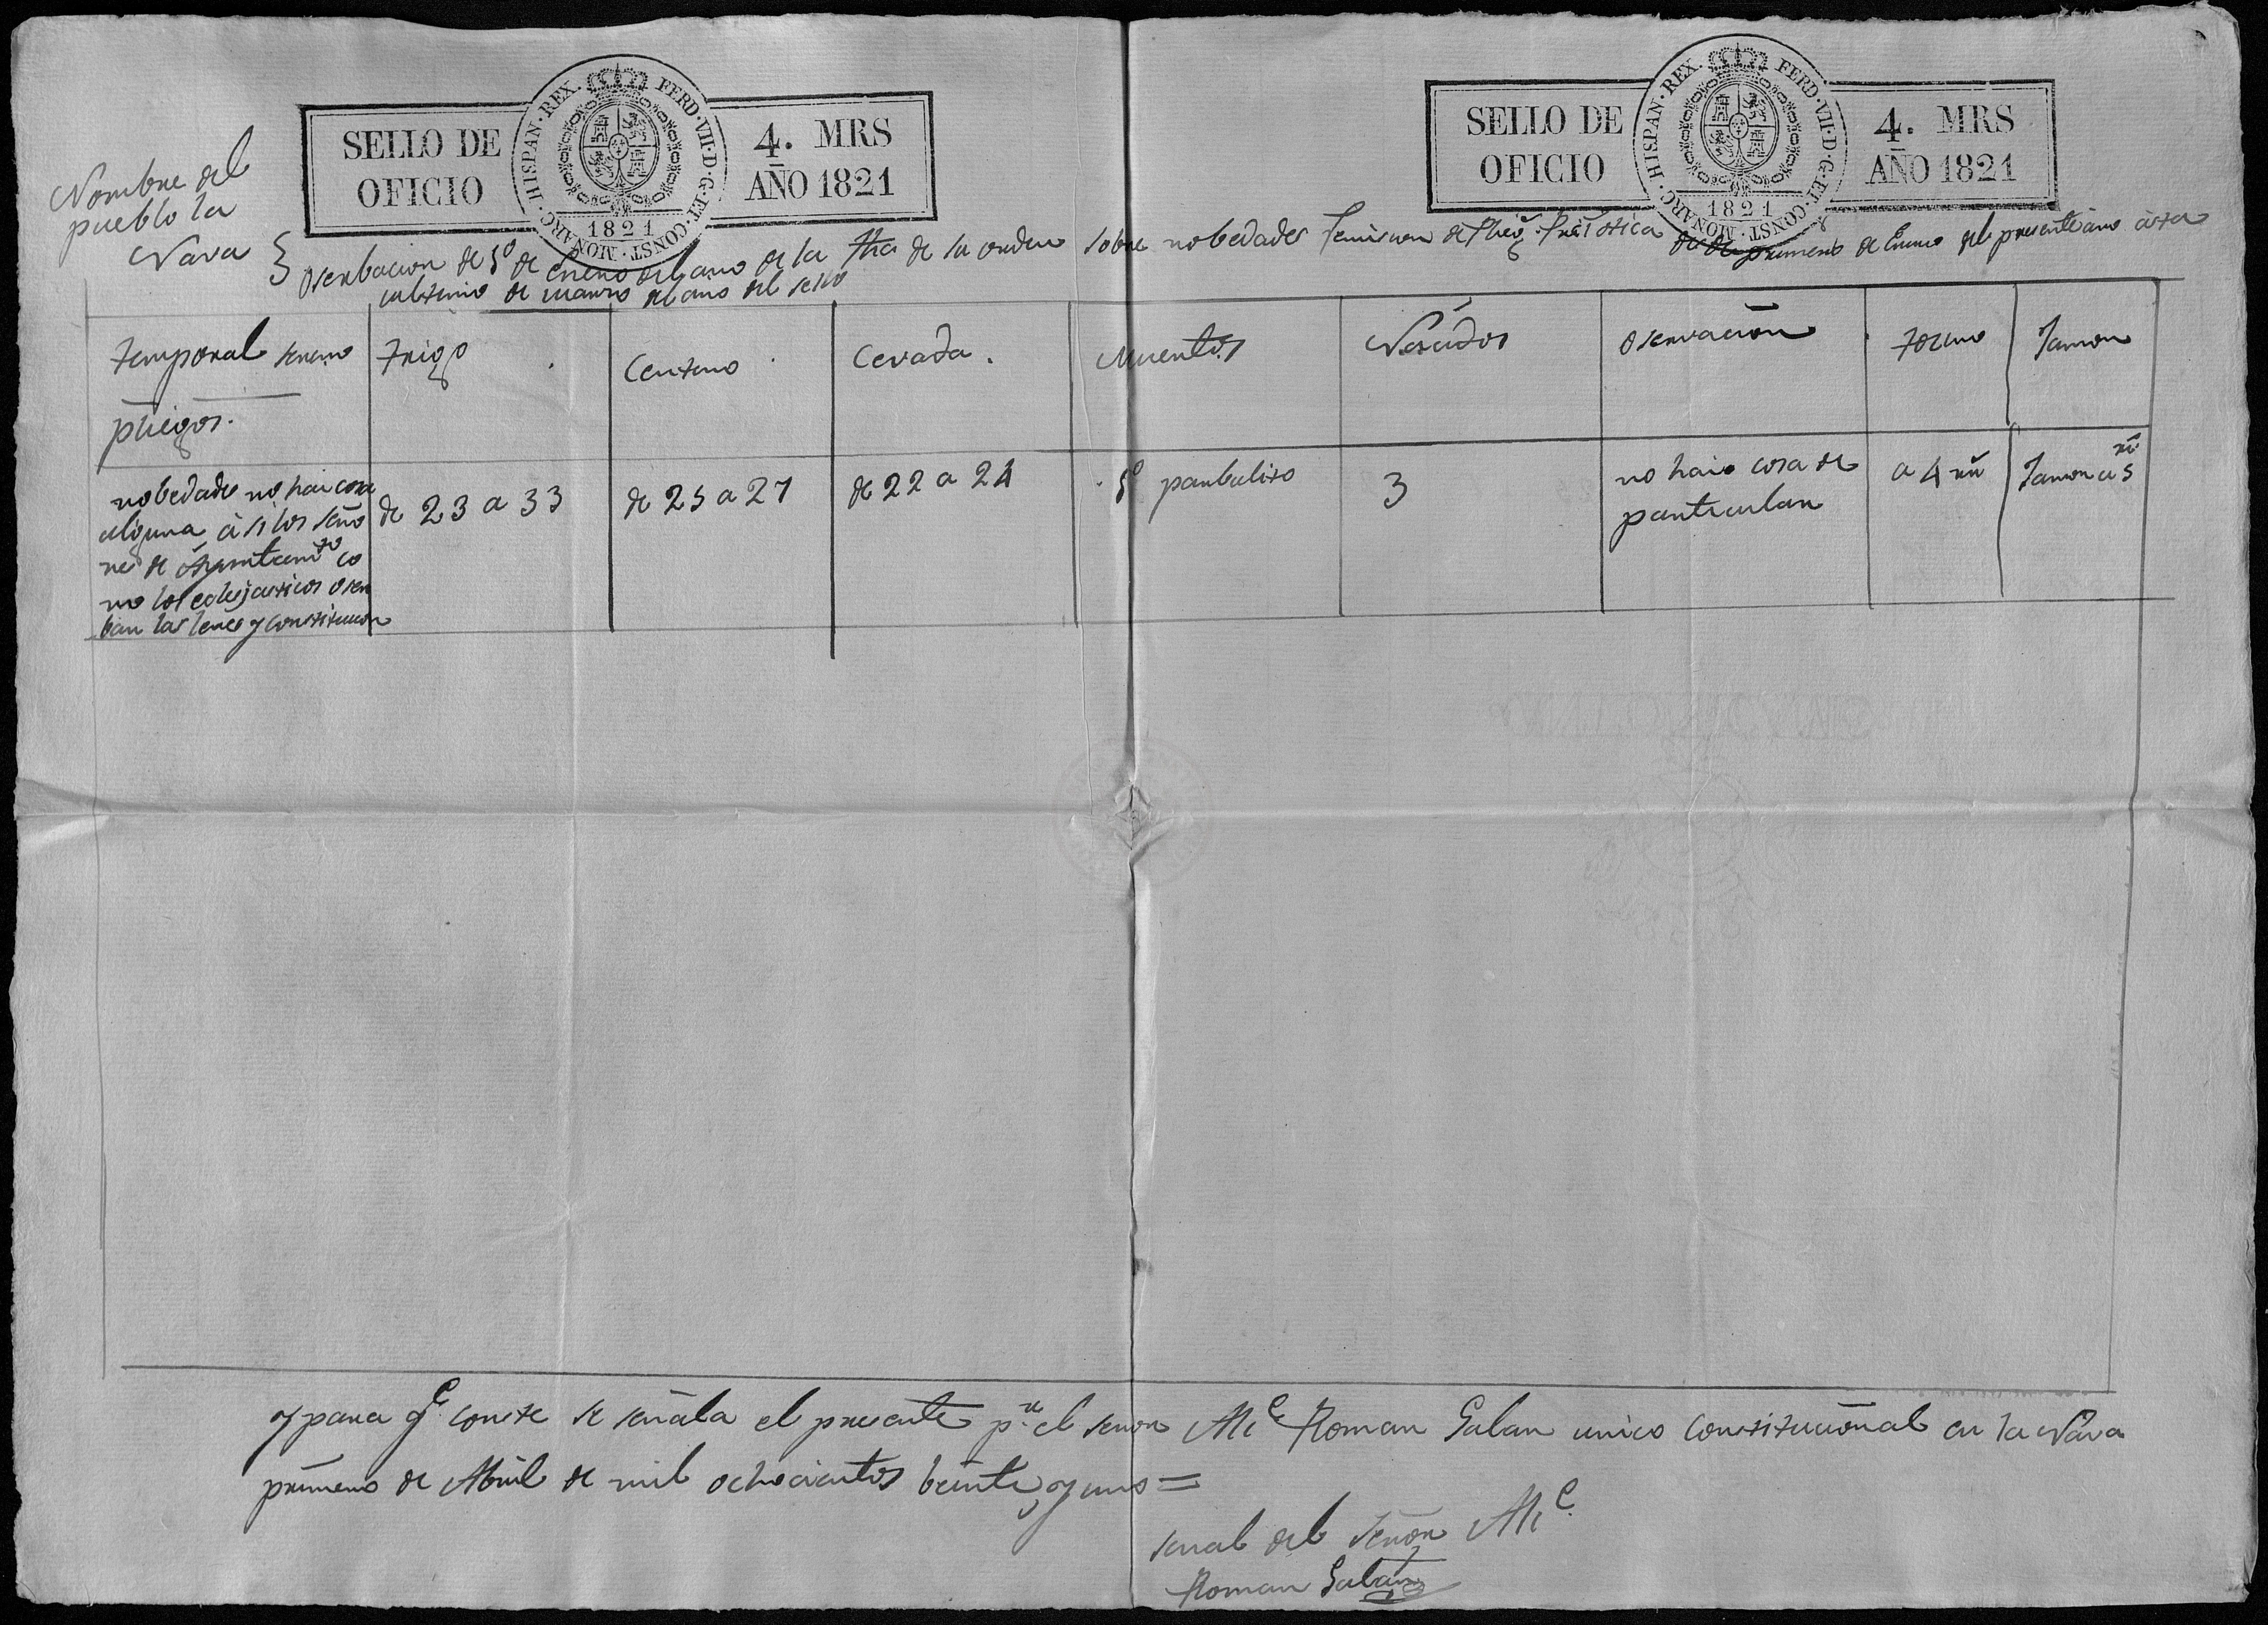 SELLO DE OFICIO
HISPAN·REX· FERD·VII·D·G·ET·CONST·MONARC·
1821
4. MRS
AÑO 1821
SELLO DE OFICIO
HISPAN·REX· FERD·VII·D·G·ET·CONST·MONARC·
1821
4. MRS
AÑO 1821
Nombre del
pueblo la
Nava
Oserbacion de 1º de Enero del año de la fha de la orden sobre nobedades primero de Enero del presente año asta
ultimo de marzo del año del sello
temporal sereno
pliegos.
trigo
Centeno
Cevada.
Muertos
Nacidos
Oservacion
tocino
Jamon
nobedades no hai cosa
alguna a si los seño
res de Ayuntamto co
mo los eclejasticos oser
ban las leies y constitucion
de 23 a 33
de 25 a 27
de 22 a 24
1º parbulito
3
no haio cosa de
particular
a 4 rrs
Jamon a 5 rrs
y para qe conste se señala el presente pr el señor Alce Roman Galan unico constitucional en la Nava
primero de Abril de mil ochocientos beinte y uno =
senal del señor Alce
Roman Galan